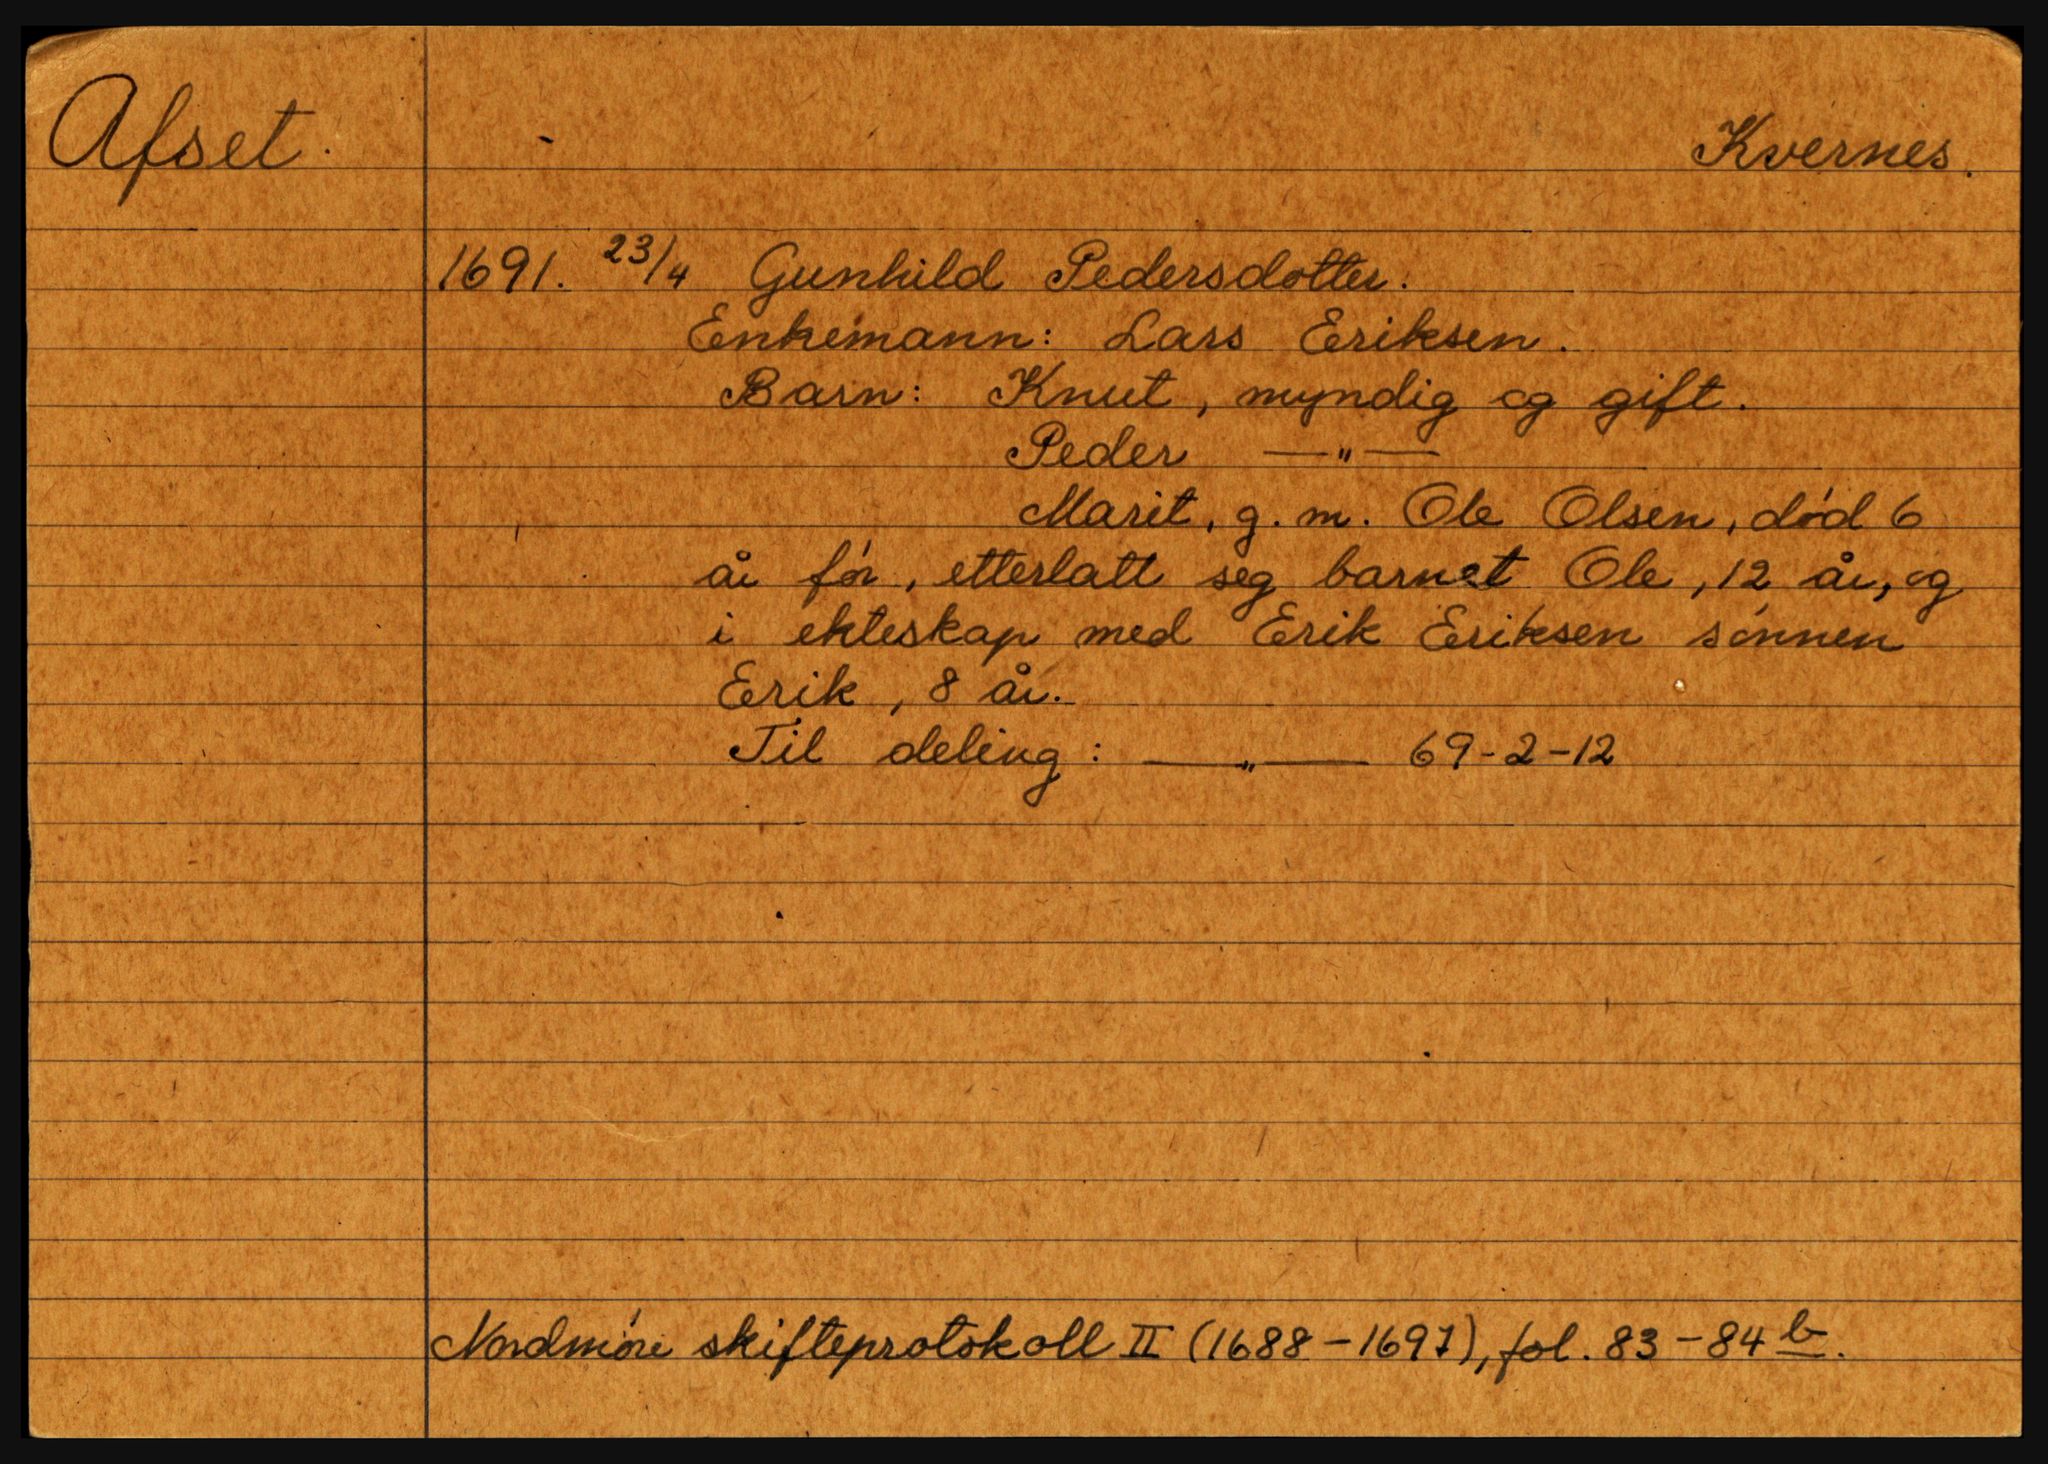 Afset.
Kvernes.
1691. 23/4 Gunhild Pedersdotter.
Enkemann: Lars Eriksen.
Barn: Knut, myndig og gift.
Peder —〃—
Marit, g. m. Ole Olsen, död 6
år för, etterlatt seg barnet Ole, 12 år, og
i ekteskap med Erik Eriksen sönnen
Erik, 8 år.
Til deling: —〃— 69-2-12
Nordmöre skifteprotokoll II (1688-1697), fol. 83-84 b.